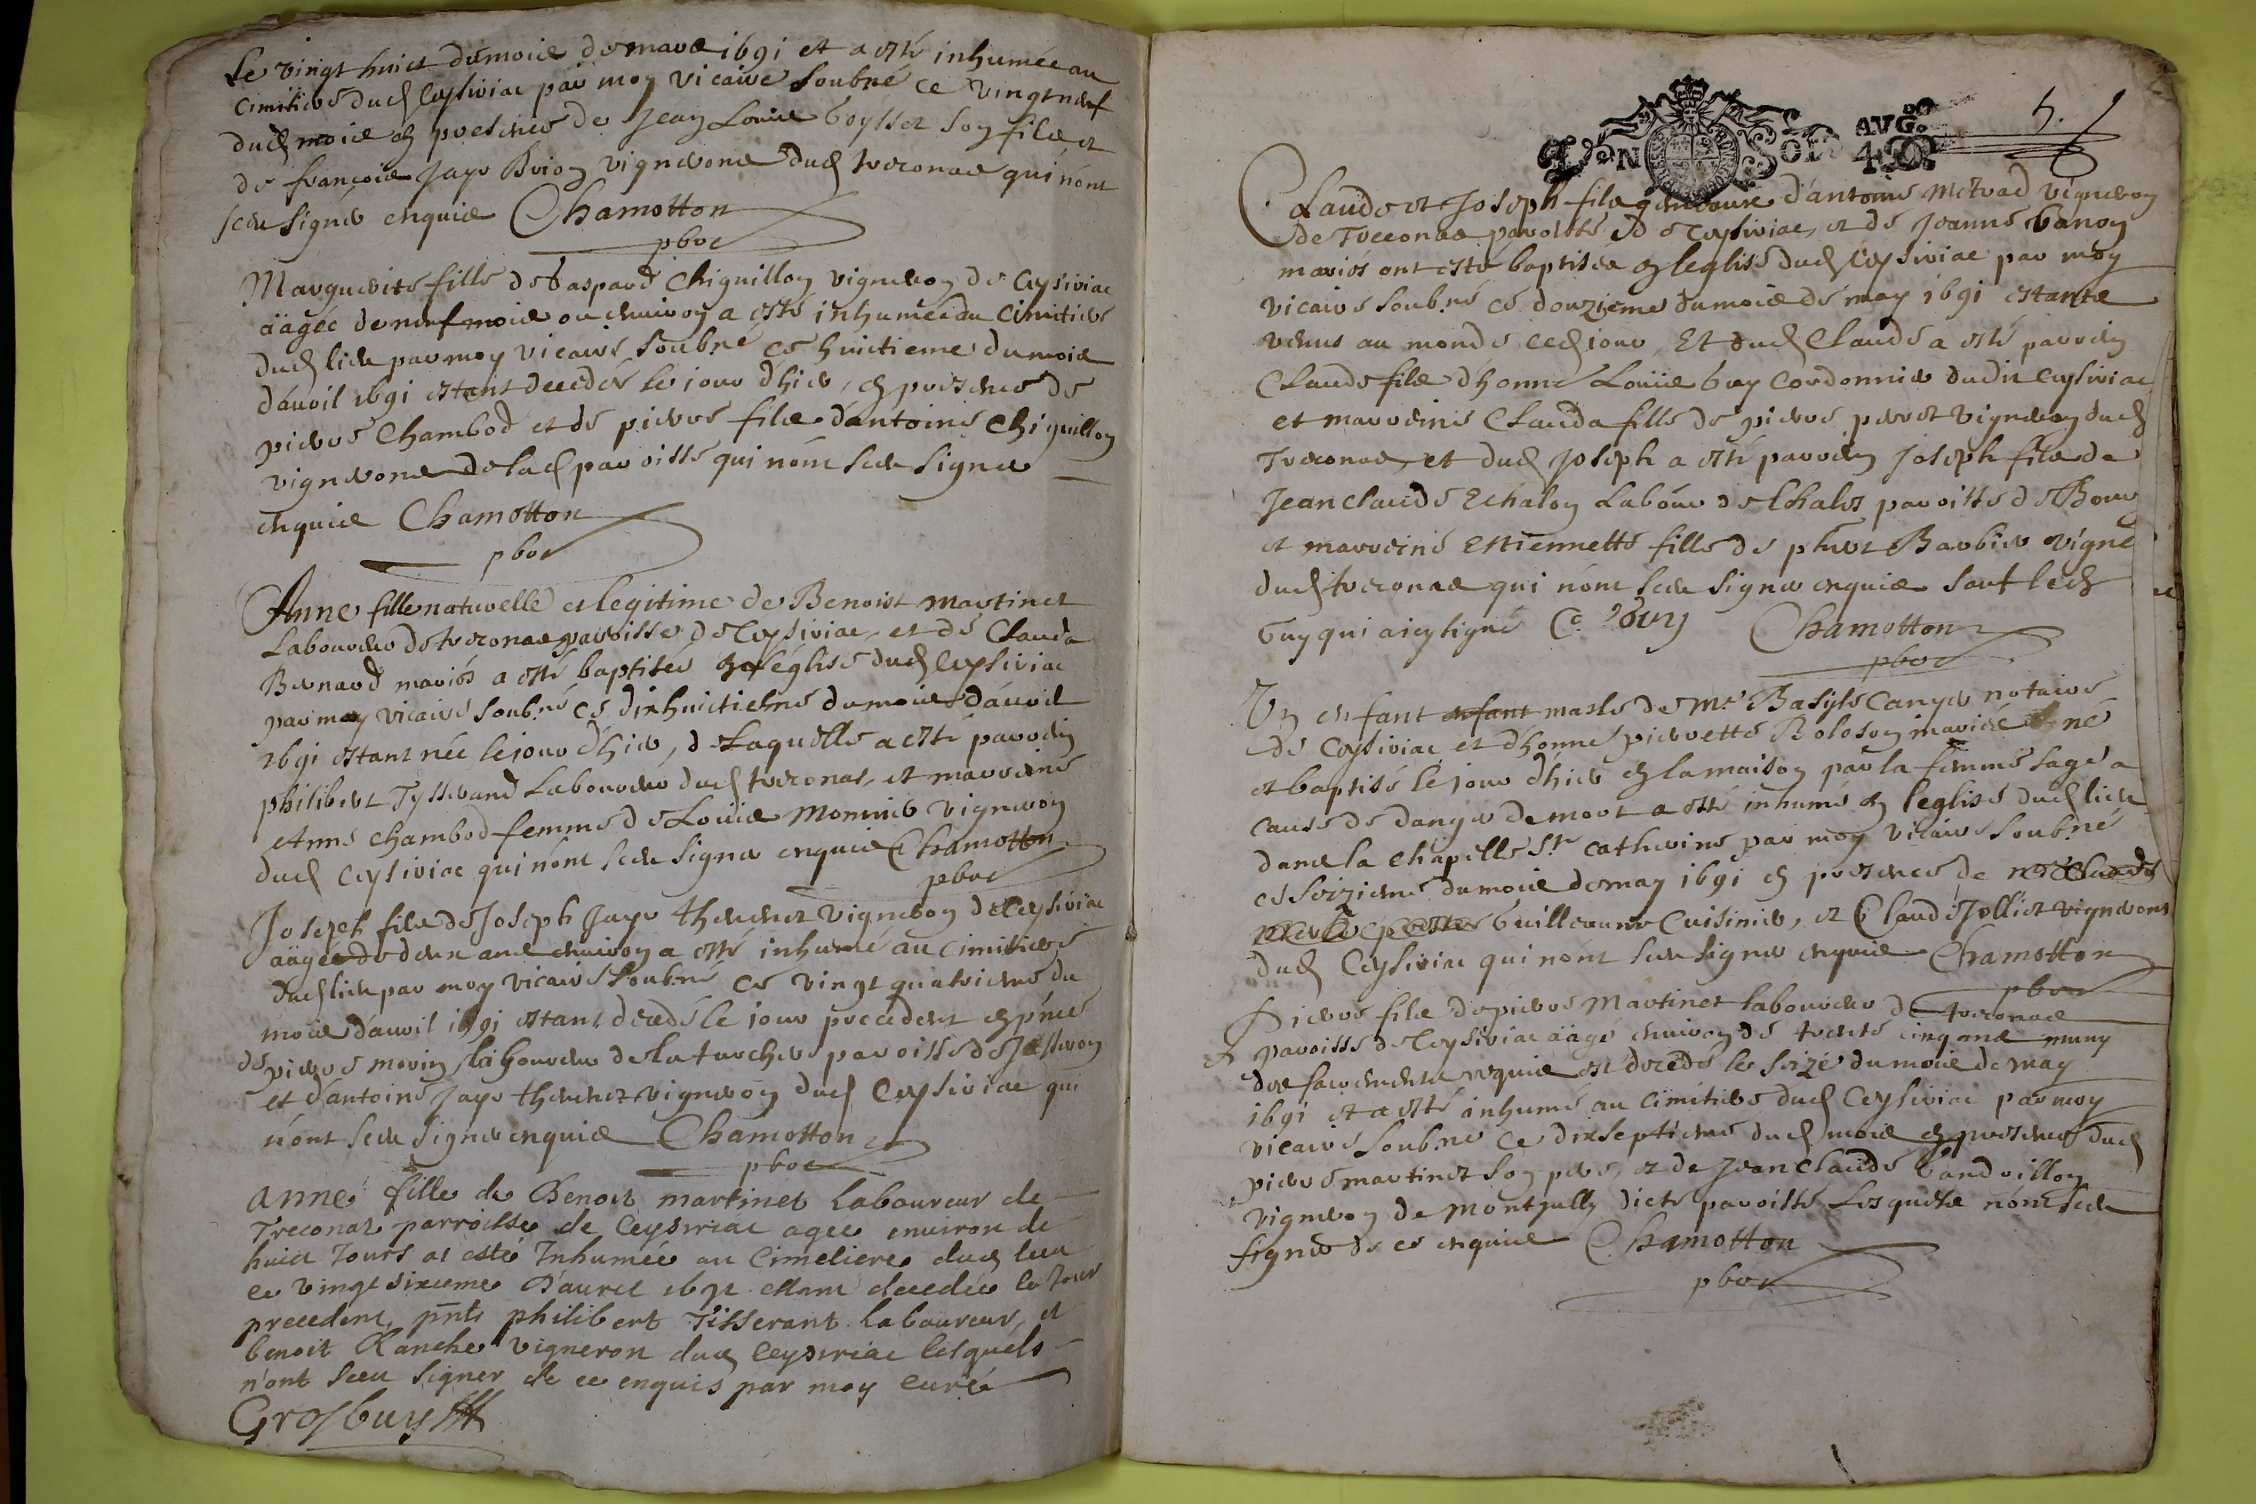 Le vingt huict du mois de mars 1691 et a esté inhumée au
cimitiere dud Ceysiriac par moy vicaire soubné ce vingt neuf
dud mois en presence de Jean Louis Goysset son fils et
de francois Jayr Brion vignerons dud treconas qui n'ont
sceu signer enquis Chamotton
pbre
Marguerite fille de Gaspard Chiquillon vigneron de Ceysiriac
aâgée de neuf mois ou environ a esté inhumée au cimitiere
dud lieu par moy vicaire soubné ce huictieme du mois
d'avril 1691 estant decedée le jour d'hier, en presence de
pierre Chambod et de pierre fils d'antoine Chiquillon
vignerons de lad paroisse qui n'ont sceu signer
enquis Chamotton
pbre
Anne fille naturelle et legitime de Benoist Martinet
Laboureur de treconas paroisse de Ceysiriac, et de Clauda
Bernard mariés a esté baptisée en l'église dud Ceysiriac
par moy vicaire soubné ce dixhuictiesme du mois d'avril
1691 estant née le jour d'hier, de laquelle a esté parrein
philibert Tysserand Laboureur dud treconas, et marreine
Anne Chambod femme de Louis Monnier vigneron
dud Ceysiriac qui n'ont sceu signer enquis Chamotton
pbre
Joseph fils de Joseph Jayr thevenet vigneron de Ceysiriac
aâgée de deux ans environ a esté inhumé au cimitiere
dud lieu par moy vicaire soubné ce vingt quatrieme du
mois d'avril 1691 estant decedé le jour precedent en pnce
de pierre morin laboureur de la tarchere paroisse de Jasseron
et d'antoine Jayr thevenet vigneron dud Ceysiriac qui
n'ont sceu signer enquis Chamotton
pbre
anne fille de Benoit martinet laboureur de
Treconas parroisse de Ceysiriac agee environ de
huict Jours at esté Inhumée au Cimetiere dud lieu
ce vingt sixieme D'avril 1691 estant decedée le Jour
precedent, pnts philibert Tisserant laboureur, et
benoit Ranche vigneron dud Ceysiriac lesquels
n'ont sceu signer de ce enquis par moy curé
Grosbuys
GEN SOL AVG. 48D
5.
Claude et Joseph fils gemeaux d'antoine Metrad vigneron
de Treconas paroisse de Ceysiriac, et de Jeanne Vanon
mariés ont esté baptisés en leglise dud Ceysiriac par moy
vicaire soubné ce douzieme du mois de may 1691 estants
venus au monde ced jour, Et dud Claude a esté parrein
Claude fils d'honne Louis Guy Cordonnier dudit Ceysiriac
et marreine Clauda fille de pierre perret vigneron dud
Treconas, et dud Joseph a esté parrein Joseph fils de
Jean Claude Echalon Labour de Chales paroisse de Bourg
et marreine Estiennette fille de phlert Barbier vigne
dud treconas qui n'ont sceu signer enquis sauf led
Guy qui a icy signé C. Guy Chamotton
pbre
Un enfant enfant masle de Me Basyle Canyer notaire
de Ceysiriac et d'honne pierrette Boloson mariés né
et baptisé le jour d'hier en la maison par la femme sage a
cause de danger de mort a esté inhumé en l'eglise dud lieu
dans la Chapelle Ste Catherine par moy vicaire soubné
ce seizieme du mois de may 1691 en presence de
Guillaume Cuisinier, et Claude Jolliet vignerons
dud Ceysiriac qui n'ont sceu signer enquis Chamotton
pbre
Pierre fils de pierre Martinet laboureur de treconas
paroisse de Ceysiriac aâgé environ de trente cinq ans muny
des sacrements requis est decedé le seize du mois de may
1691 et a esté inhumé au cimitiere dud Ceysiriac par moy
vicaire soubné ce dixseptieme dud mois en presence dud
pierre martinet son pere, et de Jean Claude Gandrillon
vigneron de Montjully dicte paroisse Lesquels n'ont sceu
signer de ce enquis Chamotton
pbre